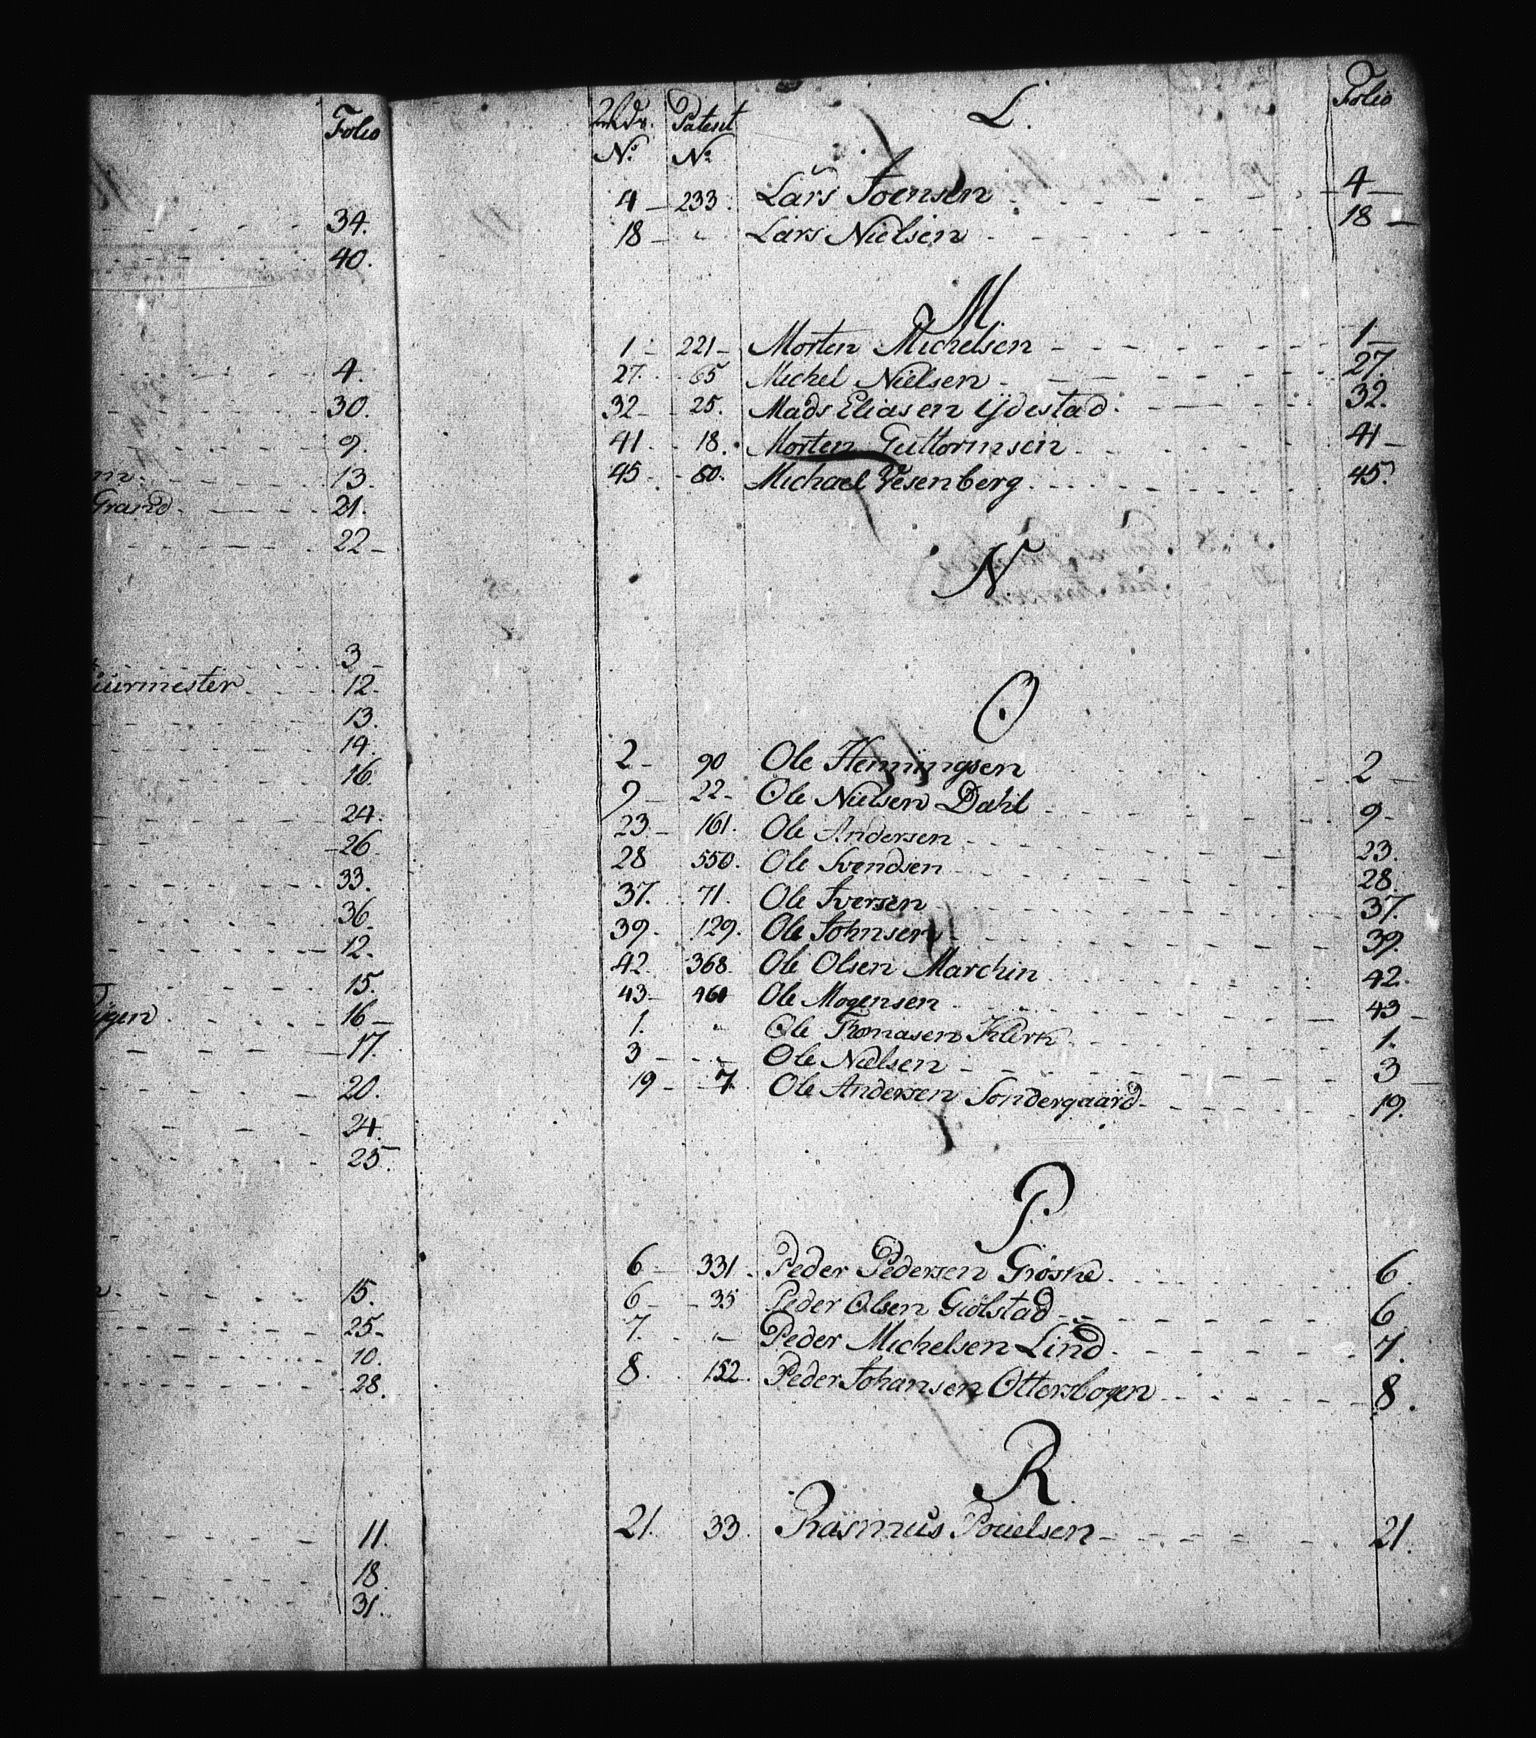 Folio
34.
40.
4.
30.
9.
13.
Grand 21.
22
3
12.
13.
14.
16
24.
26
33.
36.
12.
15.
16
17.
20.
24.
25.
15.
25.
10.
28.
11.
18
31.
Patent L. Folio
No. No.
4 233. Lars Joensen 4
18 " Lars Nielsen 18
M
1 221 Morten Michelsen 1
27. 65 Michel Nielsen 27.
32 25. Mads Eliasen Ydestad. 32.
41. 18. Morten Guttormsen 41
45 80. Michael Vesenberg. 45.
N.
O
2 90 Ole Hemingsen 2
9 22 Ole Nielsen Dahl 9
23. 161. Ole Andersen 23.
28 550. Ole Svendsen 28.
37. 71. Ole Iversen 37.
39. 129. Ole Johnsen 39.
42. 368. Ole Olsen Marchin 42.
43 464 Ole Mogensen 43
1. " Ole Thomasen Klerk 1.
3 " Ole Nielsen 3
19 7. Ole Andersen Sondergaard 19.
P.
6 331. Peder Pedersen Gröske. 6.
6 35 Peder Olsen Giölstad 6
7. " Peder Michelsen Lind 7.
8. 152. Peder Johansen Ottersbogen 8.
R.
21. 33. Rasmus Pouelsen 21.